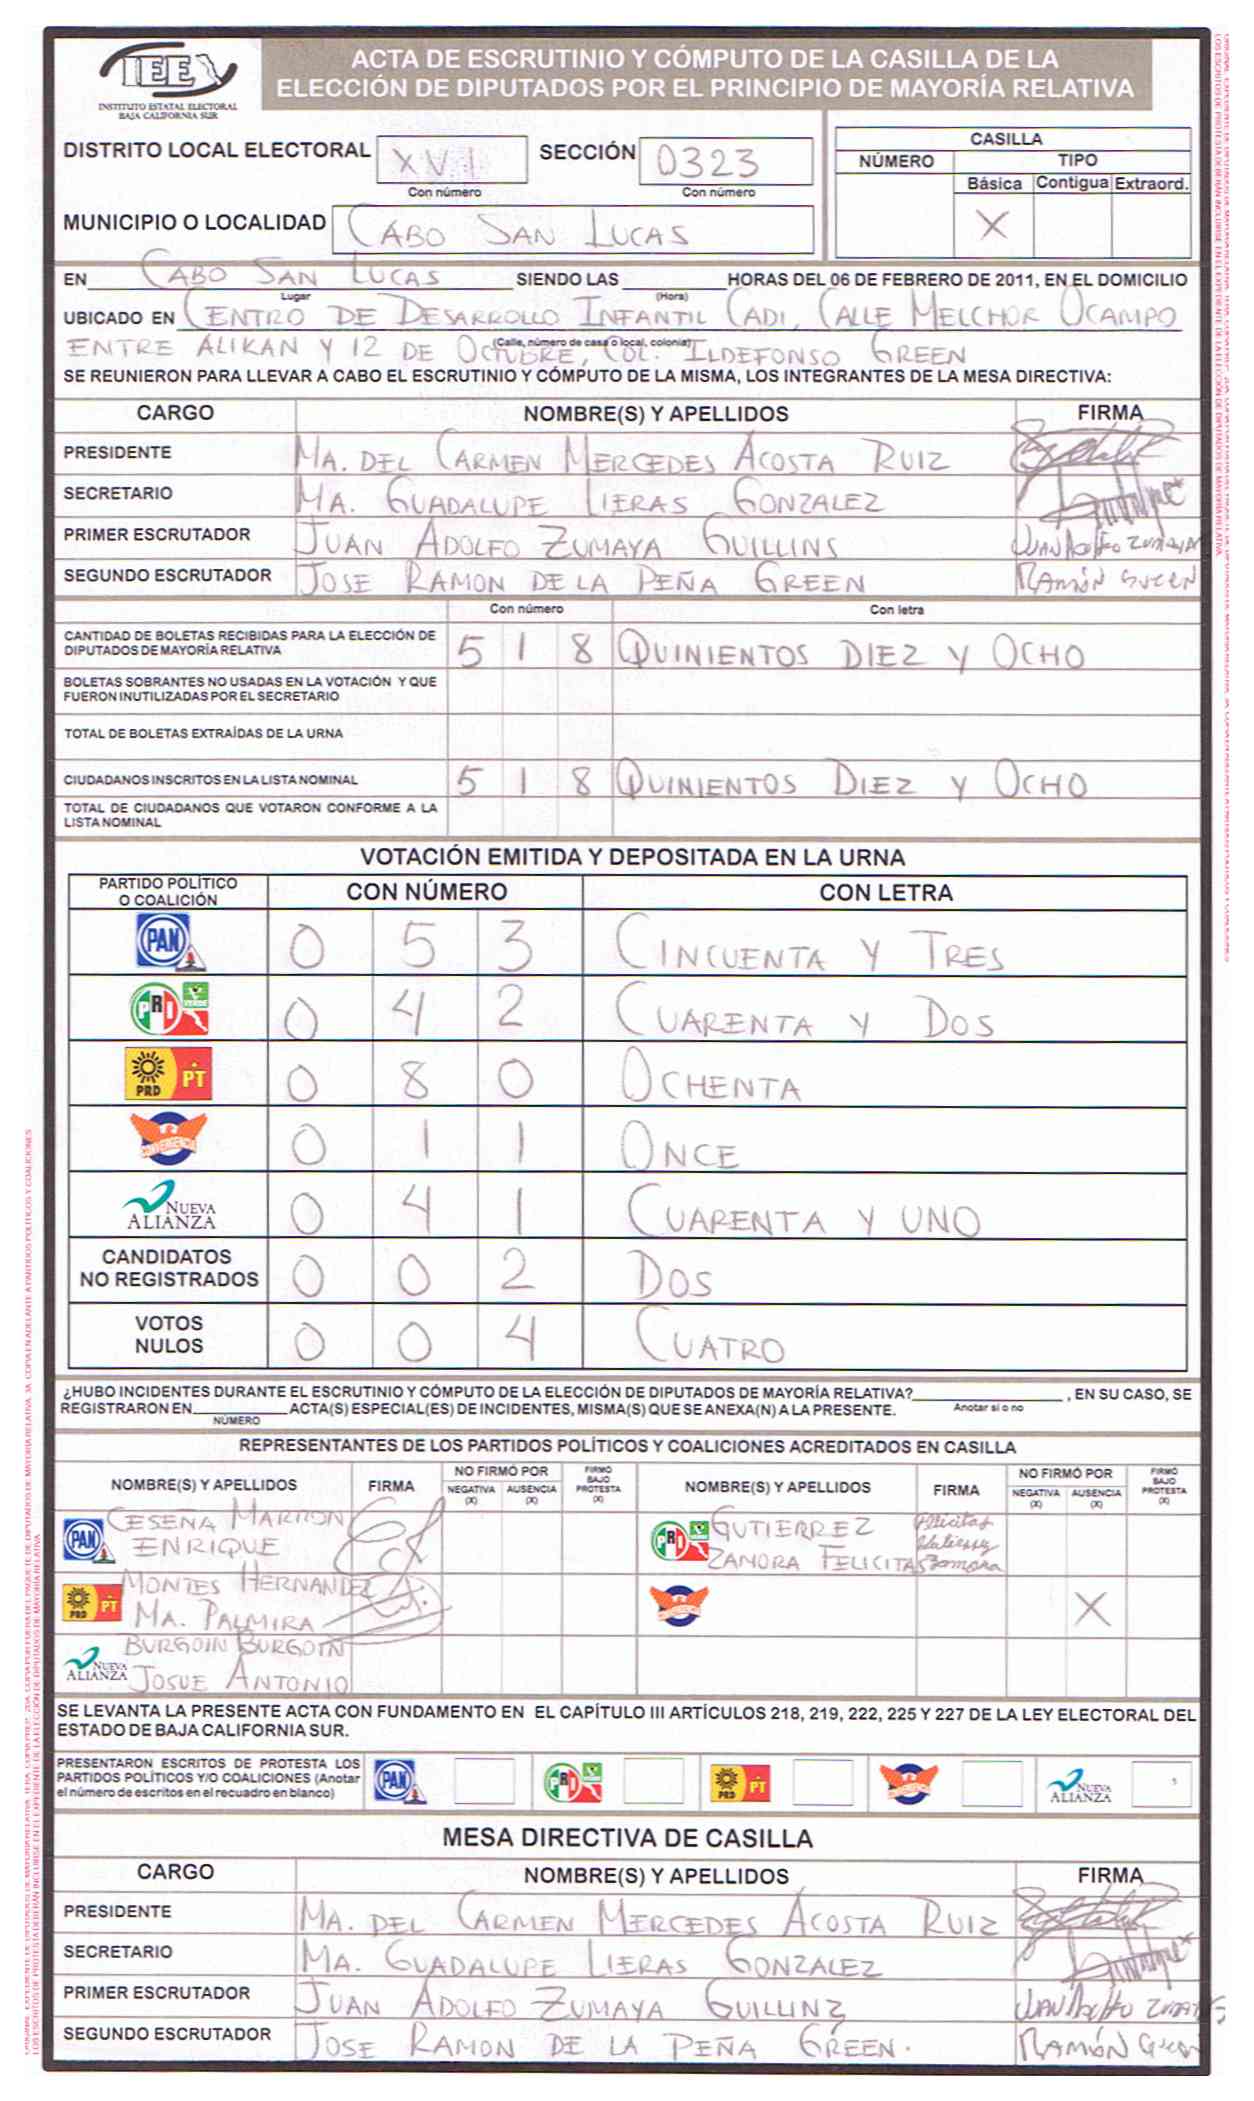 IEE
INSTITUTO ESTATAL ELECTORAL
BAJA CALIFORNIA SUR
ACTA DE ESCRUTINIO Y CÓMPUTO DE LA CASILLA DE LA
ELECCIÓN DE DIPUTADOS POR EL PRINCIPIO DE MAYORÍA RELATIVA
DISTRITO LOCAL ELECTORAL XVI SECCIÓN 0323
Con número Con número
MUNICIPIO O LOCALIDAD CABO SAN LUCAS
CASILLA
NÚMERO TIPO
Básica Contigua Extraord.
X
EN CABO SAN LUCAS SIENDO LAS HORAS DEL 06 DE FEBRERO DE 2011, EN EL DOMICILIO
Lugar (Hora)
UBICADO EN CENTRO DE DESARROLLO INFANTIL CADI, CALLE MELCHOR OCAMPO
(Calle, número de casa o local, colonia)
ENTRE ALIKAN Y 12 DE OCTUBRE, COL. ILDEFONSO GREEN
SE REUNIERON PARA LLEVAR A CABO EL ESCRUTINIO Y CÓMPUTO DE LA MISMA, LOS INTEGRANTES DE LA MESA DIRECTIVA:
CARGO NOMBRE(S) Y APELLIDOS FIRMA
PRESIDENTE MA. DEL CARMEN MERCEDES ACOSTA RUIZ
SECRETARIO MA. GUADALUPE LIERAS GONZALEZ
PRIMER ESCRUTADOR JUAN ADOLFO ZUMAYA GUILLINS JUAN ADOLFO ZUMAYA
SEGUNDO ESCRUTADOR JOSE RAMON DE LA PEÑA GREEN RAMÓN GREEN
Con número Con letra
CANTIDAD DE BOLETAS RECIBIDAS PARA LA ELECCIÓN DE
DIPUTADOS DE MAYORÍA RELATIVA 5 1 8 QUINIENTOS DIEZ Y OCHO
BOLETAS SOBRANTES NO USADAS EN LA VOTACIÓN Y QUE
FUERON INUTILIZADAS POR EL SECRETARIO
TOTAL DE BOLETAS EXTRAÍDAS DE LA URNA
CIUDADANOS INSCRITOS EN LA LISTA NOMINAL 5 1 8 QUINIENTOS DIEZ Y OCHO
TOTAL DE CIUDADANOS QUE VOTARON CONFORME A LA
LISTA NOMINAL
VOTACIÓN EMITIDA Y DEPOSITADA EN LA URNA
PARTIDO POLÍTICO
O COALICIÓN CON NÚMERO CON LETRA
PAN 0 5 3 CINCUENTA Y TRES
PRI VERDE 0 4 2 CUARENTA Y DOS
PRD PT 0 8 0 OCHENTA
CONVERGENCIA 0 1 1 ONCE
NUEVA ALIANZA 0 4 1 CUARENTA Y UNO
CANDIDATOS
NO REGISTRADOS 0 0 2 DOS
VOTOS
NULOS 0 0 4 CUATRO
¿HUBO INCIDENTES DURANTE EL ESCRUTINIO Y CÓMPUTO DE LA ELECCIÓN DE DIPUTADOS DE MAYORÍA RELATIVA? , EN SU CASO, SE
Anotar sí o no
REGISTRARON EN ACTA(S) ESPECIAL(ES) DE INCIDENTES, MISMA(S) QUE SE ANEXA(N) A LA PRESENTE.
NÚMERO
REPRESENTANTES DE LOS PARTIDOS POLÍTICOS Y COALICIONES ACREDITADOS EN CASILLA
NOMBRE(S) Y APELLIDOS FIRMA NO FIRMÓ POR NEGATIVA (X) AUSENCIA (X) FIRMÓ BAJO PROTESTA (X) NOMBRE(S) Y APELLIDOS FIRMA NO FIRMÓ POR NEGATIVA (X) AUSENCIA (X) FIRMÓ BAJO PROTESTA (X)
PAN CESEÑA MARRON
ENRIQUE
PRI GUTIERREZ
ZAMORA FELICITAS
Felicitas
Gutierrez
Zamora
PRD PT MONTES HERNANDEZ
MA. PALMIRA
CONVERGENCIA X
NUEVA ALIANZA BURGOIN BURGOIN
JOSUE ANTONIO
SE LEVANTA LA PRESENTE ACTA CON FUNDAMENTO EN EL CAPÍTULO III ARTÍCULOS 218, 219, 222, 225 Y 227 DE LA LEY ELECTORAL DEL
ESTADO DE BAJA CALIFORNIA SUR.
PRESENTARON ESCRITOS DE PROTESTA LOS
PARTIDOS POLÍTICOS Y/O COALICIONES (Anotar
el número de escritos en el recuadro en blanco)
PAN PRI PRD PT CONVERGENCIA NUEVA ALIANZA
MESA DIRECTIVA DE CASILLA
CARGO NOMBRE(S) Y APELLIDOS FIRMA
PRESIDENTE MA. DEL CARMEN MERCEDES ACOSTA RUIZ
SECRETARIO MA. GUADALUPE LIERAS GONZALEZ
PRIMER ESCRUTADOR JUAN ADOLFO ZUMAYA GUILLINZ
SEGUNDO ESCRUTADOR JOSE RAMON DE LA PEÑA GREEN. RAMÓN GREEN